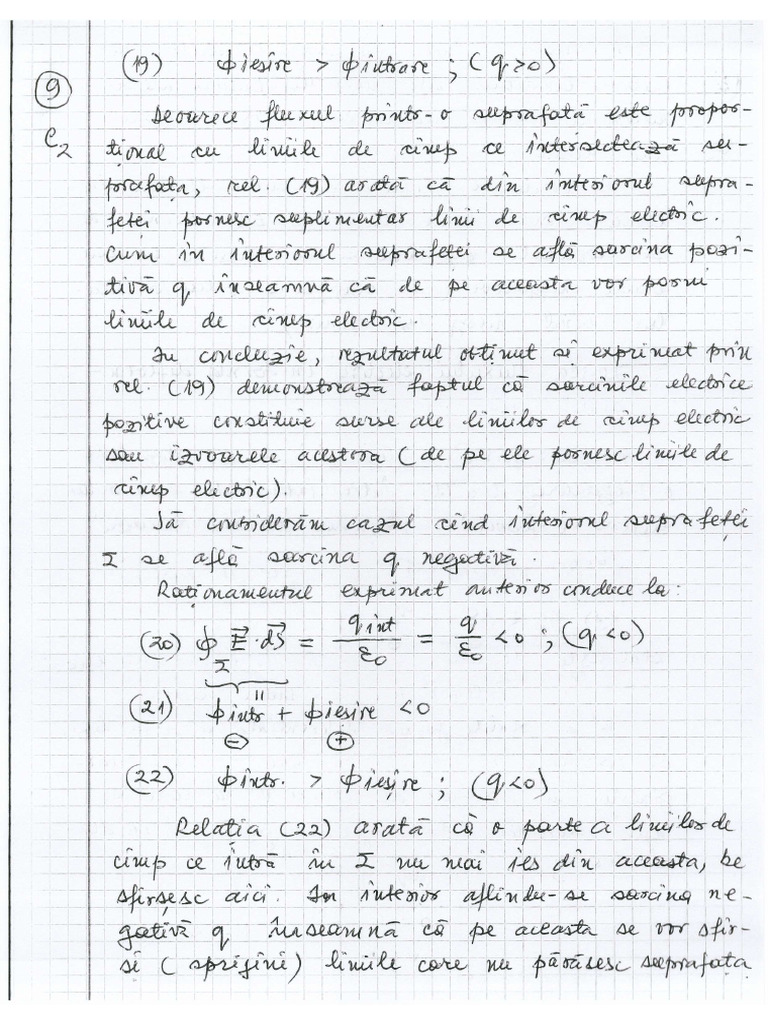 (19) ɸiesire > ɸintrare ; (q>0)
9
C2
Deoarece fluxul printr-o suprafată este propor-
tional cu liniile de cîmp ce intersectează su-
prafata, rel. (19) arată că din interiorul supra-
fetei pornesc suplimentar linii de cîmp electric.
Cum in interiorul suprafetei se află sarcina pozi-
tivă q, înseamnă că de pe aceasta vor porni
liniile de cîmp electric.
In concluzie, rezultatul obtinut si exprimat prin
rel. (19) demonstrează faptul că sarcinile electrice
pozitive constituie surse ale liniilor de cîmp electric
sau izvoarele acestora (de pe ele pornesc liniile de
cîmp electric).
Să considerăm cazul cînd interiorul suprafetei
Σ se află sarcina q negativă.
Rationamentul exprimat anterior conduce la:
(20) ∮Σ E⃗·dS⃗ = qint/ε0 = q/ε0 <0 ; (q<0)
(21) ɸintr + ɸiesire <0
⊖ ⊕
(22) ɸintr. > ɸiesire ; (q<0)
Relatia (22) arată că o parte a liniilor de
cîmp ce intră în Σ nu mai ies din aceasta, se
sfîrsesc aici. In interior aflîndu-se sarcina ne-
gativă q înseamnă că pe aceasta se vor sfîr-
si (sprijini) liniile care nu părăsesc suprafata